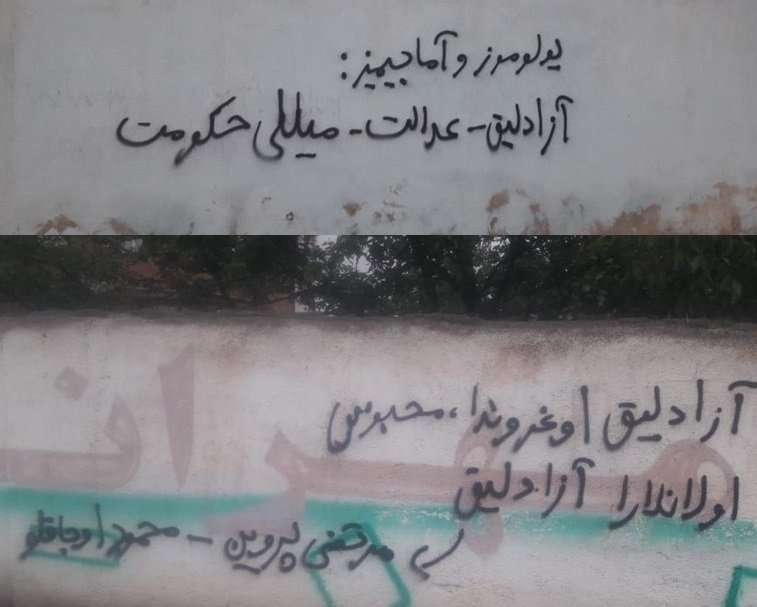 یولوموز و آماجیمیز:
آزادلیق - عدالت - میللی حکومت
آزادلیق اوغروندا، محبوس
اولانلارا آزادلیق
مرتضی پروین - محمود اوجاقلو